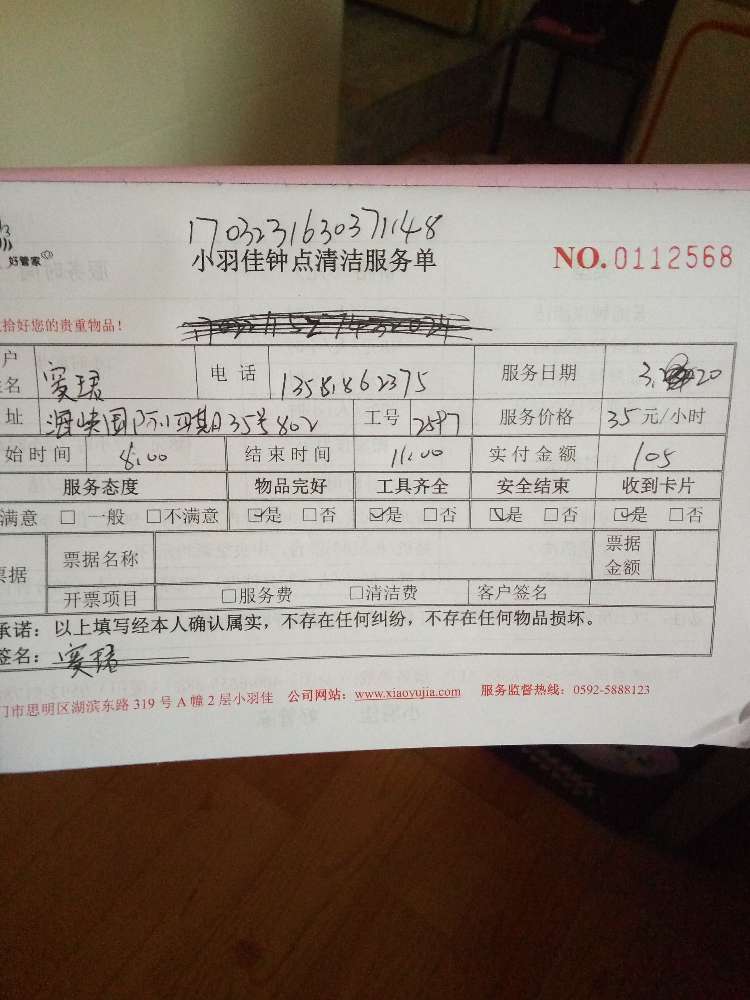 1703231630371148
好管家
小羽佳钟点清洁服务单
NO.0112568
拾好您的贵重物品！
户 名 窦珺 电 话 13581862375 服务日期 3. 20
址 35号802 工号 2597 服务价格 35元/小时
始时间 8:00 结束时间 11:00 实付金额 105
服务态度 物品完好 工具齐全 安全结束 收到卡片
满意 □ 一般 □不满意 ☑是 □否 ☑是 □否 ☑是 □否 ☑是 □否
据 票据名称 票据金额
开票项目 □服务费 □清洁费 客户签名
承诺：以上填写经本人确认属实，不存在任何纠纷，不存在任何物品损坏。
签名：窦珺
门市思明区湖滨东路 319 号 A 幢 2 层小羽佳 公司网站：www.xiaoyujia.com 服务监督热线：0592-5888123